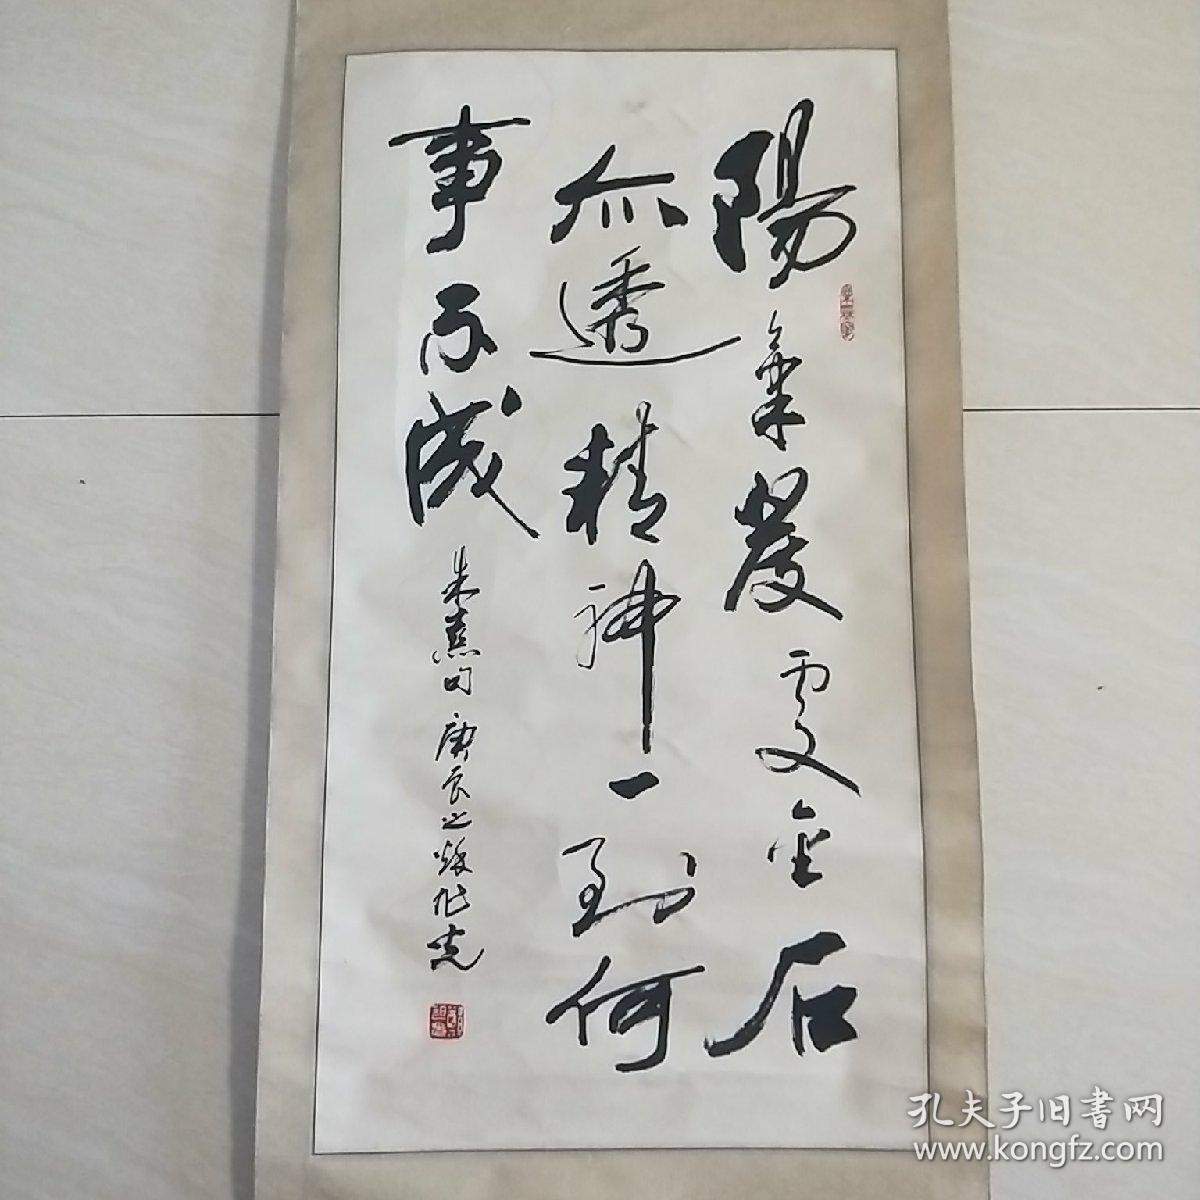 陽氣發處金石
亦透精神一到何
事不成
朱熹句 庚辰之
孔夫子旧書网
www.kongfz.com